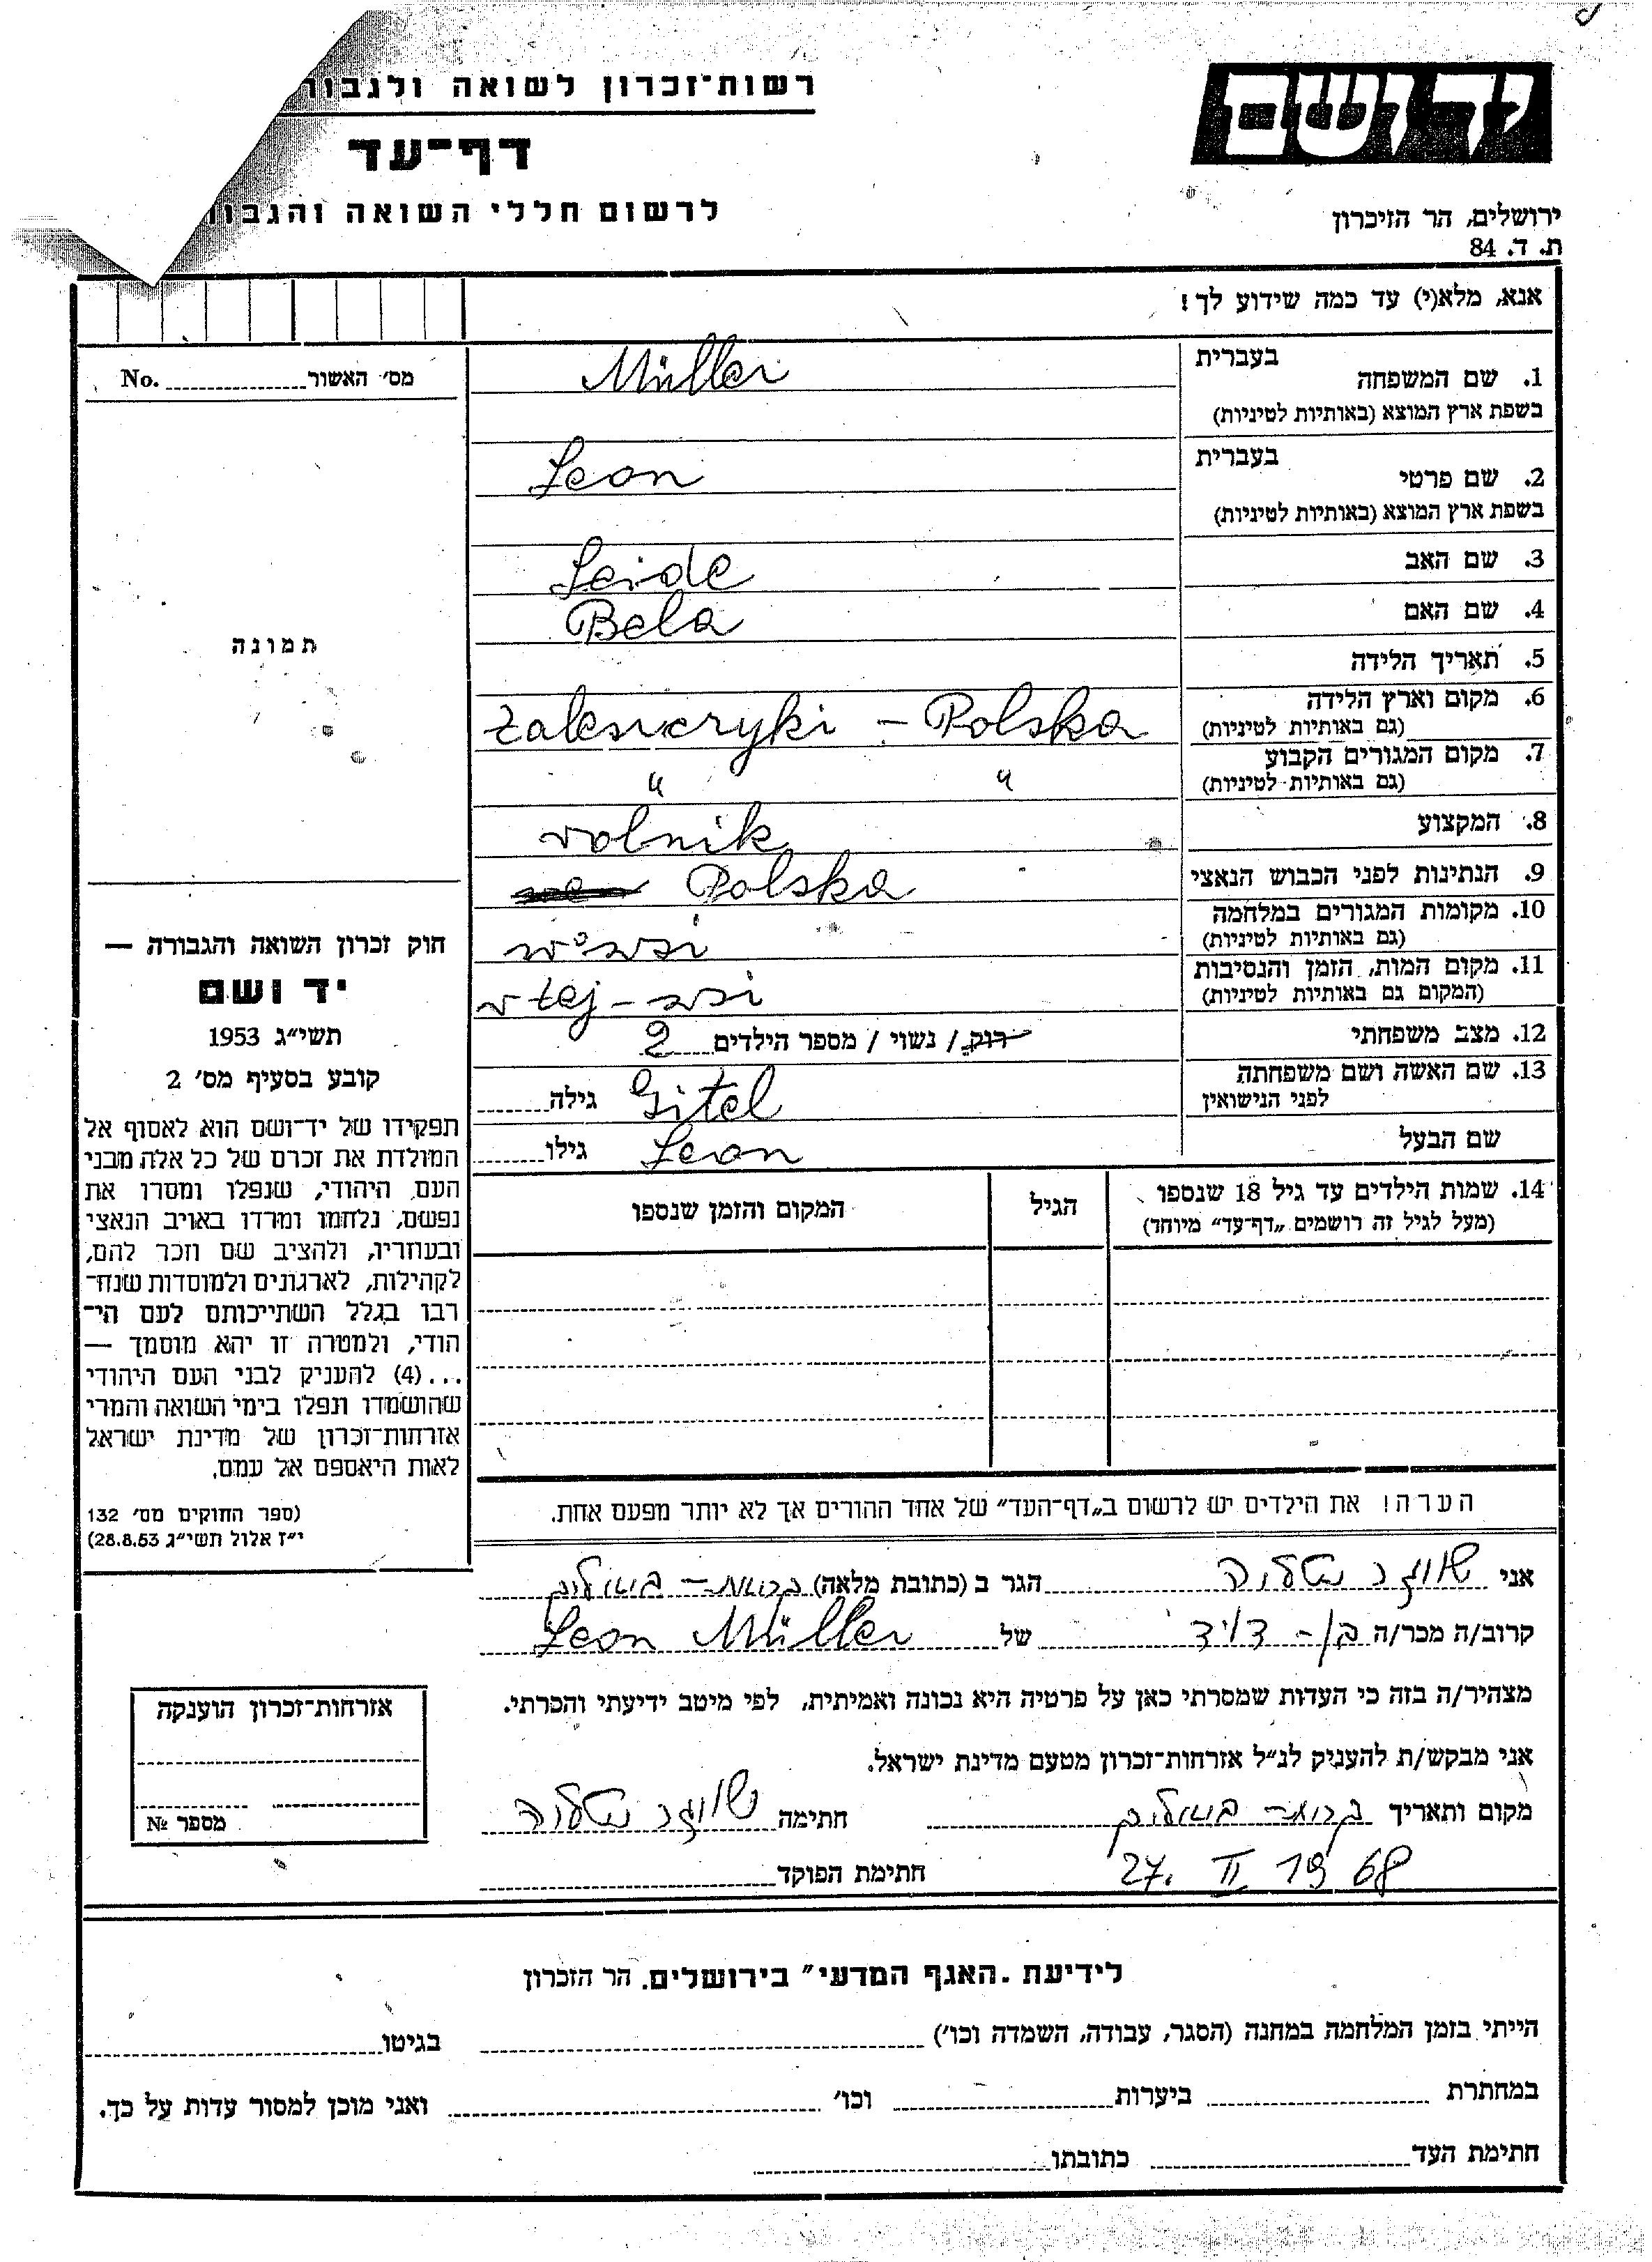 יד ושם
רשות־זכרון לשואה ולגבור
דף־עד
לרשום חללי השואה והגבו
ירושלים, הר הזיכרון
ת. ד. 84
אנא, מלא(י) עד כמה שידוע לך!
מס׳ האשור No.
בעברית
1. שם המשפחה Müller
בשפת ארץ המוצא (באותיות לטיניות)
בעברית
2. שם פרטי Leon
בשפת ארץ המוצא (באותיות לטיניות)
3. שם האב Leide
4. שם האם Bela
תמונה
5. תאריך הלידה
6. מקום וארץ הלידה Zaleszczyki – Polska
(גם באותיות לטיניות)
7. מקום המגורים הקבוע " "
(גם באותיות לטיניות)
8. המקצוע rolnik
9. הנתינות לפני הכבוש הנאצי Polska
10. מקומות המגורים במלחמה w wsi
(גם באותיות לטיניות)
11. מקום המות, הזמן והנסיבות w tej – wsi
(המקום גם באותיות לטיניות)
12. מצב משפחתי רווק / נשוי / מספר הילדים 2
13. שם האשה ושם משפחתה Gitel גילה
לפני הנישואין
שם הבעל Leon גילו
14. שמות הילדים עד גיל 18 שנספו הגיל המקום והזמן שנספו
(מעל לגיל זה רושמים „דף־עד״ מיוחד)
חוק זכרון השואה והגבורה —
יד ושם
תשי״ג 1953
קובע בסעיף מס׳ 2
תפקידו של יד־ושם הוא לאסוף אל
המולדת את זכרם של כל אלה מבני
העם היהודי, שנפלו ומסרו את
נפשם, נלחמו ומרדו באויב הנאצי
ובעוזריו, ולהציב שם וזכר להם,
לקהילות, לארגונים ולמוסדות שנח־
רבו בגלל השתייכותם לעם הי־
הודי, ולמטרה זו יהא מוסמך —
...(4) להעניק לבני העם היהודי
שהושמדו ונפלו בימי השואה והמרי
אזרחות־זכרון של מדינת ישראל
לאות היאספם אל עמם.
(ספר החוקים מס׳ 132
י״ז אלול תשי״ג 28.8.53)
הערה! את הילדים יש לרשום ב„דף־העד״ של אחד ההורים אך לא יותר מפעם אחת.
אני הגר ב (כתובת מלאה)
קרוב/ה מכר/ה בן – דויד של Leon Müller
מצהיר/ה בזה כי העדות שמסרתי כאן על פרטיה היא נכונה ואמיתית, לפי מיטב ידיעתי והכרתי.
אני מבקש/ת להעניק לנ״ל אזרחות־זכרון מטעם מדינת ישראל.
מקום ותאריך חתימה
27. II 1968
חתימת הפוקד
אזרחות־זכרון הוענקה
מספר №
לידיעת „האגף המדעי״ בירושלים. הר הזכרון
הייתי בזמן המלחמה במחנה (הסגר, עבודה, השמדה וכו׳) בגיטו
במחתרת ביערות וכו׳ ואני מוכן למסור עדות על כך.
חתימת העד כתובתו